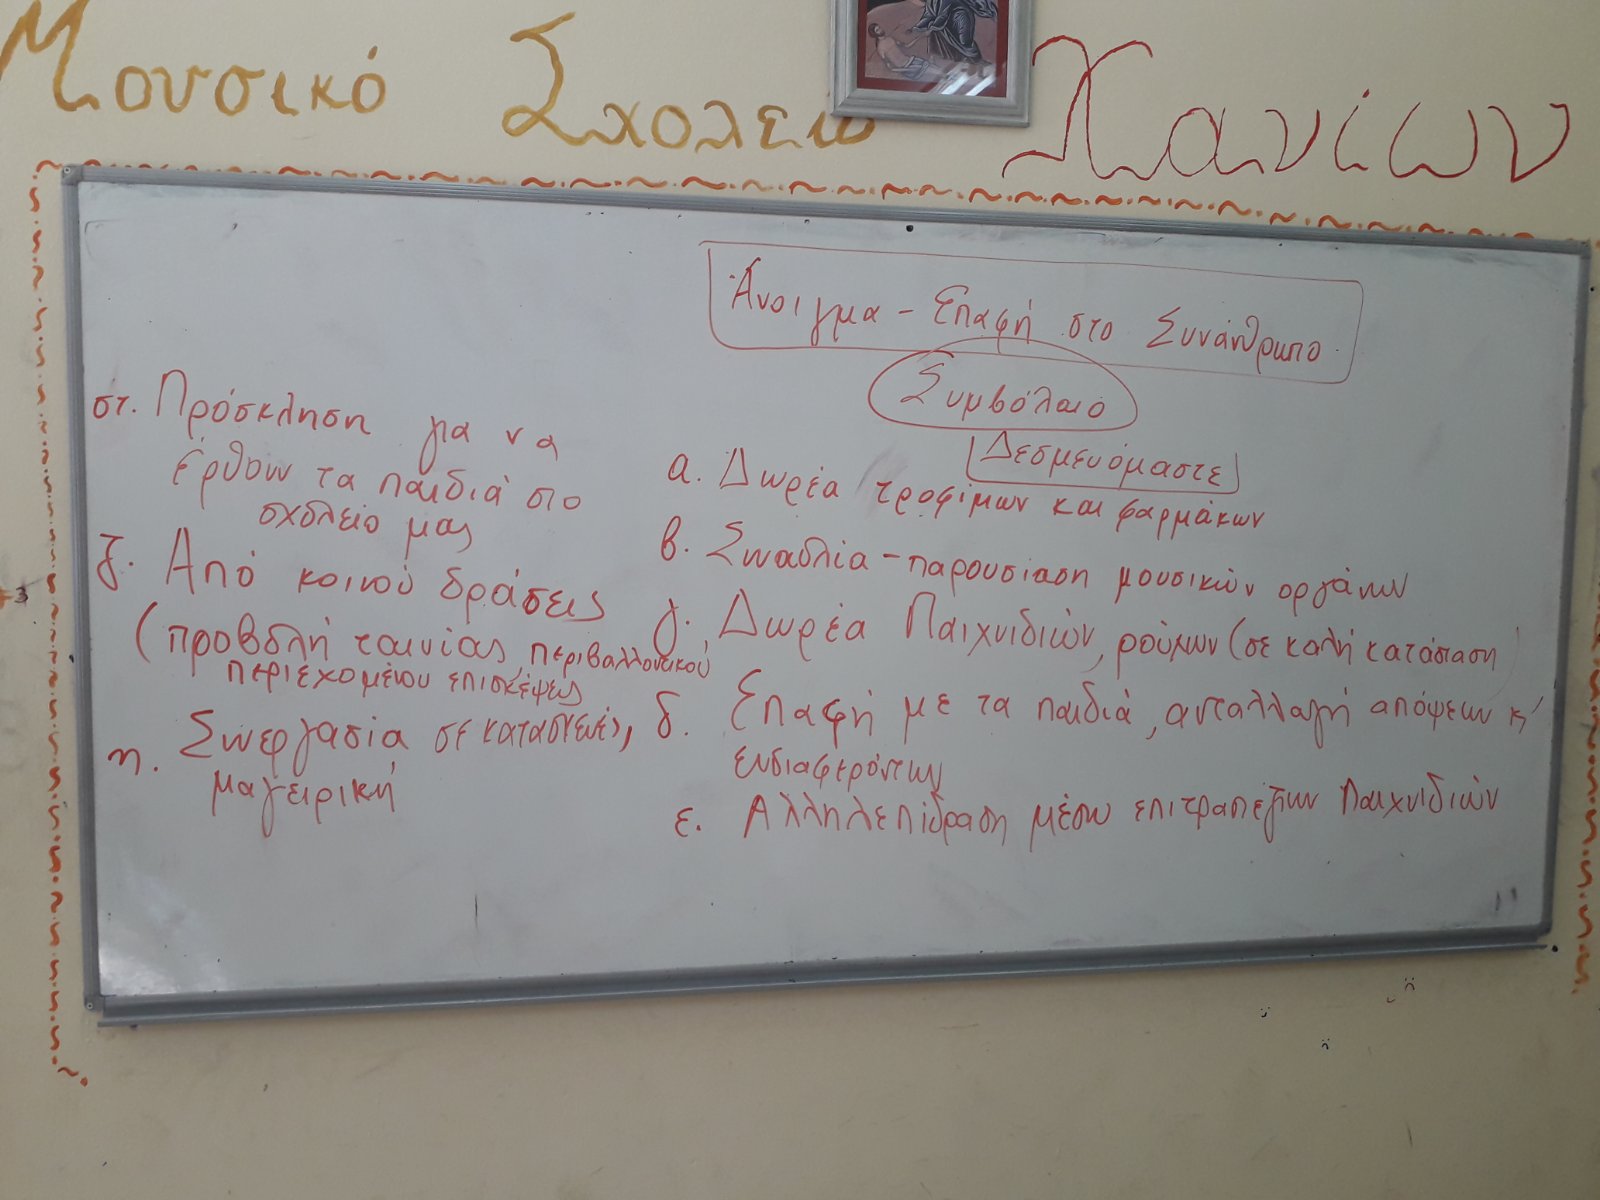 Μουσικό Σχολείο Χανίων
Άνοιγμα - Επαφή στο Συνάνθρωπο
Συμβόλαιο
Δεσμευόμαστε
α. Δωρέα τροφίμων και φαρμάκων
β. Συναυλία - παρουσίαση μουσικών οργάνων
γ. Δωρέα Παιχνιδιών, ρούχων (σε καλή κατάσταση)
δ. Επαφή με τα παιδιά, ανταλλαγή απόψεων κ'
ενδιαφερόντων
ε. Αλληλεπίδραση μέσω επιτραπέζιων Παιχνιδιών
στ. Πρόσκληση για να
έρθουν τα παιδιά στο
σχολείο μας
ζ. Από κοινού δράσεις
(προβολή ταινίας, περιβαλλοντικού
περιεχομένου επισκέψεις
η. Συνεργασία σε κατασκευές,
μαγειρική